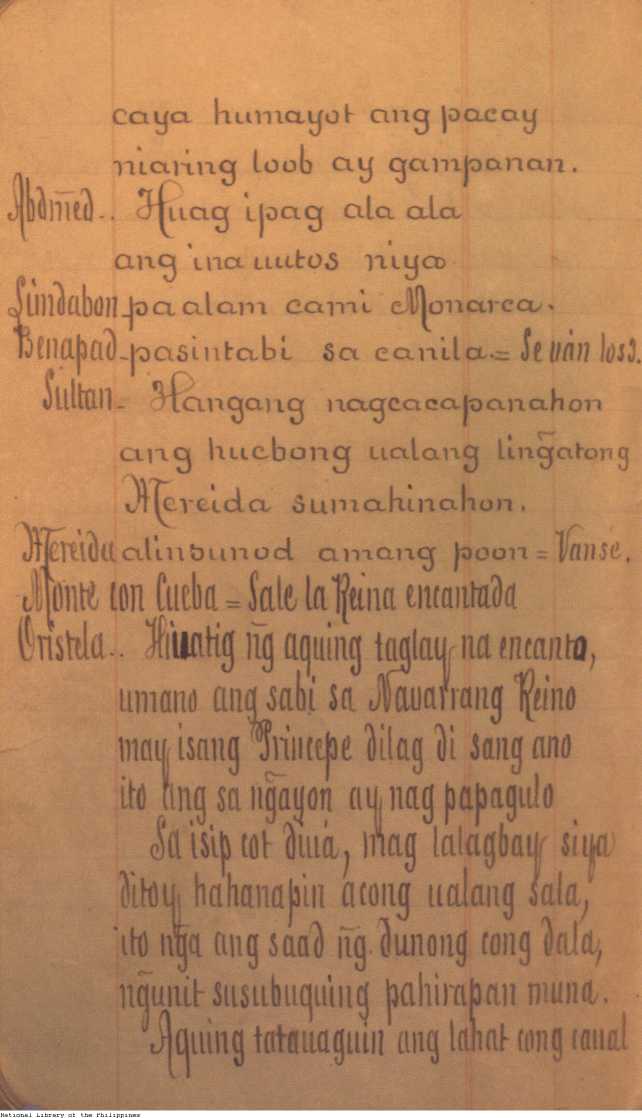 caya humayot ang pacay
niaring loob ay gampanan.
Abdm̃ed.. Huag ipag ala ala
ang ina uutos niya
Lindabon paalam cami Monarca.
Benapad-pasintabi sa canila.= Se ván los 3.
Sultan- Hangang nagcacapanahon
ang hucbong ualang ling̃atong
Mereida sumahinahon.
Mereida alinsunod amang poon = Vanse.
Monte con Cueba = Sale la Reina encantada
Oristela.. Hiuatig ñg aquing taglay na encanto,
umano ang sabi sa Navarrang Reino
may isang Princepe dilag di sang ano
ito ang sa ng̃ayon ay nag papagulo
Sa isip cot diua, mag lalagbay siya
ditoy hahanapin acong ualang sala,
ito ng̃a ang saad ñg. dunong cong dala,
ng̃unit susubuquing pahirapan muna.
Aquing tatauaguin ang lahat cong caual
National Library of the Philippines